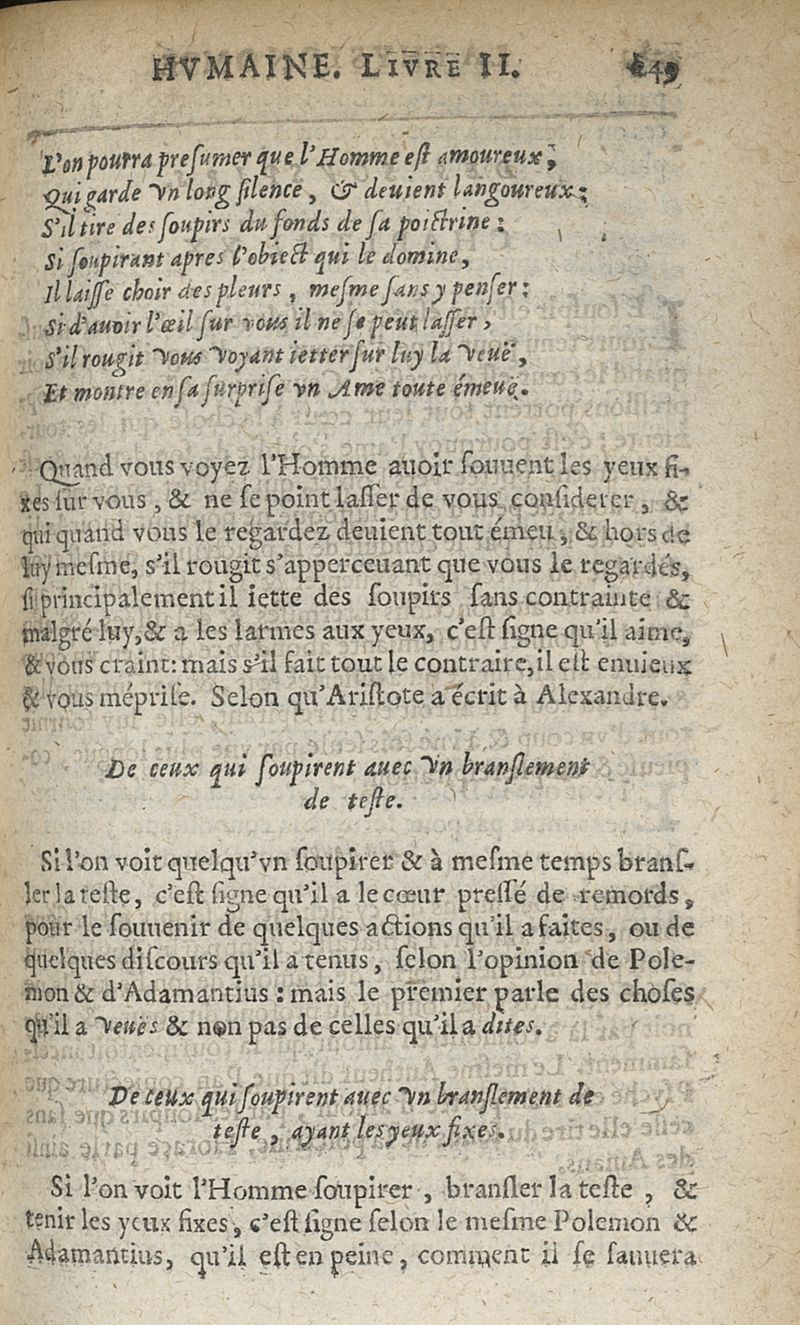 HVMAINE. LIVRE II. 149
L'on pourra presumer que l'Homme est amoureux;
Qui garde vn long silence, & deuient langoureux;
S'il tire des soupirs du fonds de sa poictrine:
Si soupirant apres l'obiect qui le domine,
Il laisse choir des pleurs, mesme sans y penser:
Si d'auoir l'œil sur vous il ne se peut lasser,
S'il rougit vous voyant ietter sur luy la veuë,
Et montre en sa surprise vn Ame toute émeuë.
Quand vous voyez l'Homme auoir souuent les yeux fi-
xes sur vous, & ne se point lasser de vous considerer, &
qui quand vous le regardez deuient tout émeu, & hors de
luy mesme, s'il rougit s'apperceuant que vous le regardés,
si principalement il iette des soupirs sans contrainte &
malgré luy, & a les larmes aux yeux, c'est signe qu'il aime,
& vous craint: mais s'il fait tout le contraire, il est enuieux
& vous méprise. Selon qu'Aristote a écrit à Alexandre.
De ceux qui soupirent auec vn branslement
de teste.
Si l'on voit quelqu'vn soupirer & à mesme temps brans-
ler la teste, c'est signe qu'il a le cœur pressé de remords,
pour le souuenir de quelques actions qu'il a faites, ou de
quelques discours qu'il a tenus, selon l'opinion de Pole-
mon & d'Adamantius: mais le premier parle des choses
qu'il a veuës & non pas de celles qu'il a dites.
De ceux qui soupirent auec vn branslement de
teste, ayant les yeux fixes.
Si l'on voit l'Homme soupirer, bransler la teste, &
tenir les yeux fixes, c'est signe selon le mesme Polemon &
Adamantius, qu'il est en peine, comment il se sauuera